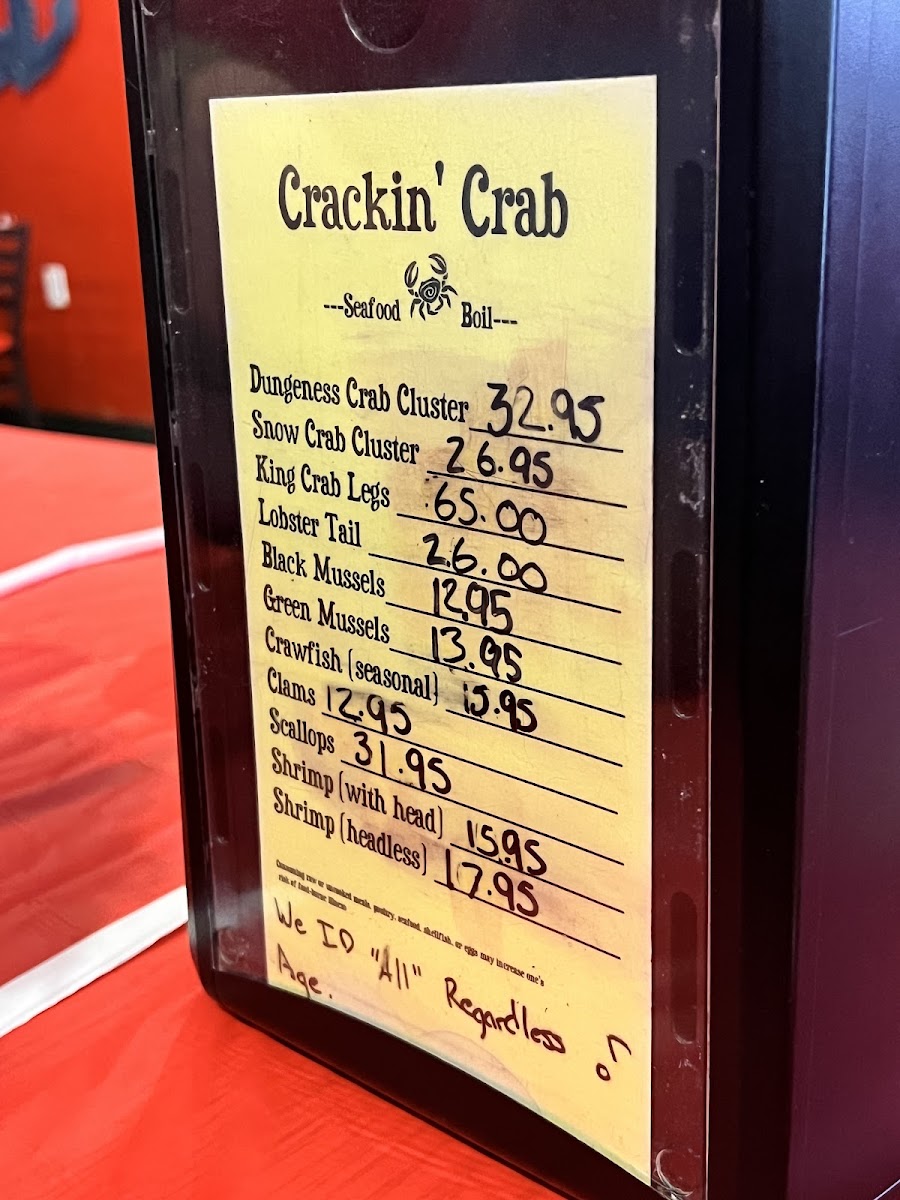 Crackin' Crab
---Seafood Boil---
Dungeness Crab Cluster 32.95
Snow Crab Cluster 26.95
King Crab Legs 65.00
Lobster Tail 26.00
Black Mussels 12.95
Green Mussels 13.95
Crawfish (seasonal) 15.95
Clams 12.95
Scallops 31.95
Shrimp (with head) 15.95
Shrimp (headless) 17.95
Consuming raw or uncooked meats, poultry, seafood, shellfish, or eggs may increase one's
risk of food-borne illness
We ID "All" Regardless of
Age.